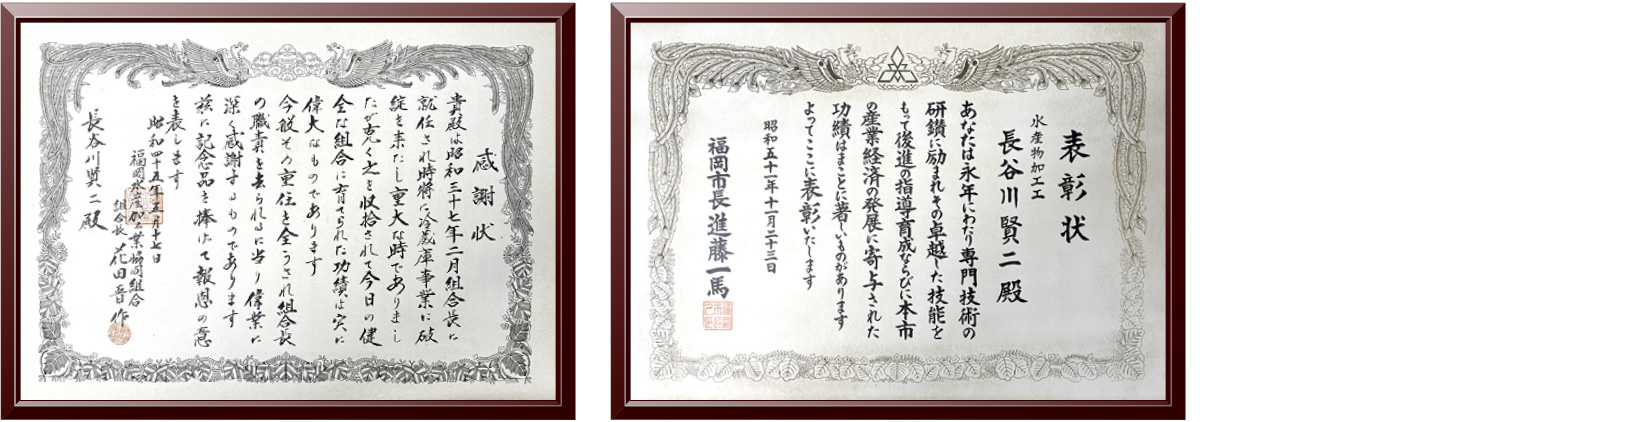 感謝状
貴殿は昭和三十七年二月組合長に
就任され時将に冷蔵庫事業に破
綻を来たし重大な時でありまし
たが克く之を収拾されて今日の健
全な組合に育てられた功績は実に
偉大なものであります
今般その重任を全うされ組合長
の職責を去られるに当り偉業に
深く感謝するものであります
茲に記念品を捧げて報恩の意
を表します
昭和四十五年五月十七日
福岡水産加工業協同組合
組合長 花田晋作
長谷川賢二殿
表彰状
水産物加工工
長谷川賢二殿
あなたは永年にわたり専門技術の
研鑽に励まれその卓越した技能を
もって後進の指導育成ならびに本市
の産業経済の発展に寄与された
功績はまことに著しいものがあります
よってここに表彰いたします
昭和五十一年十一月二十三日
福岡市長進藤一馬